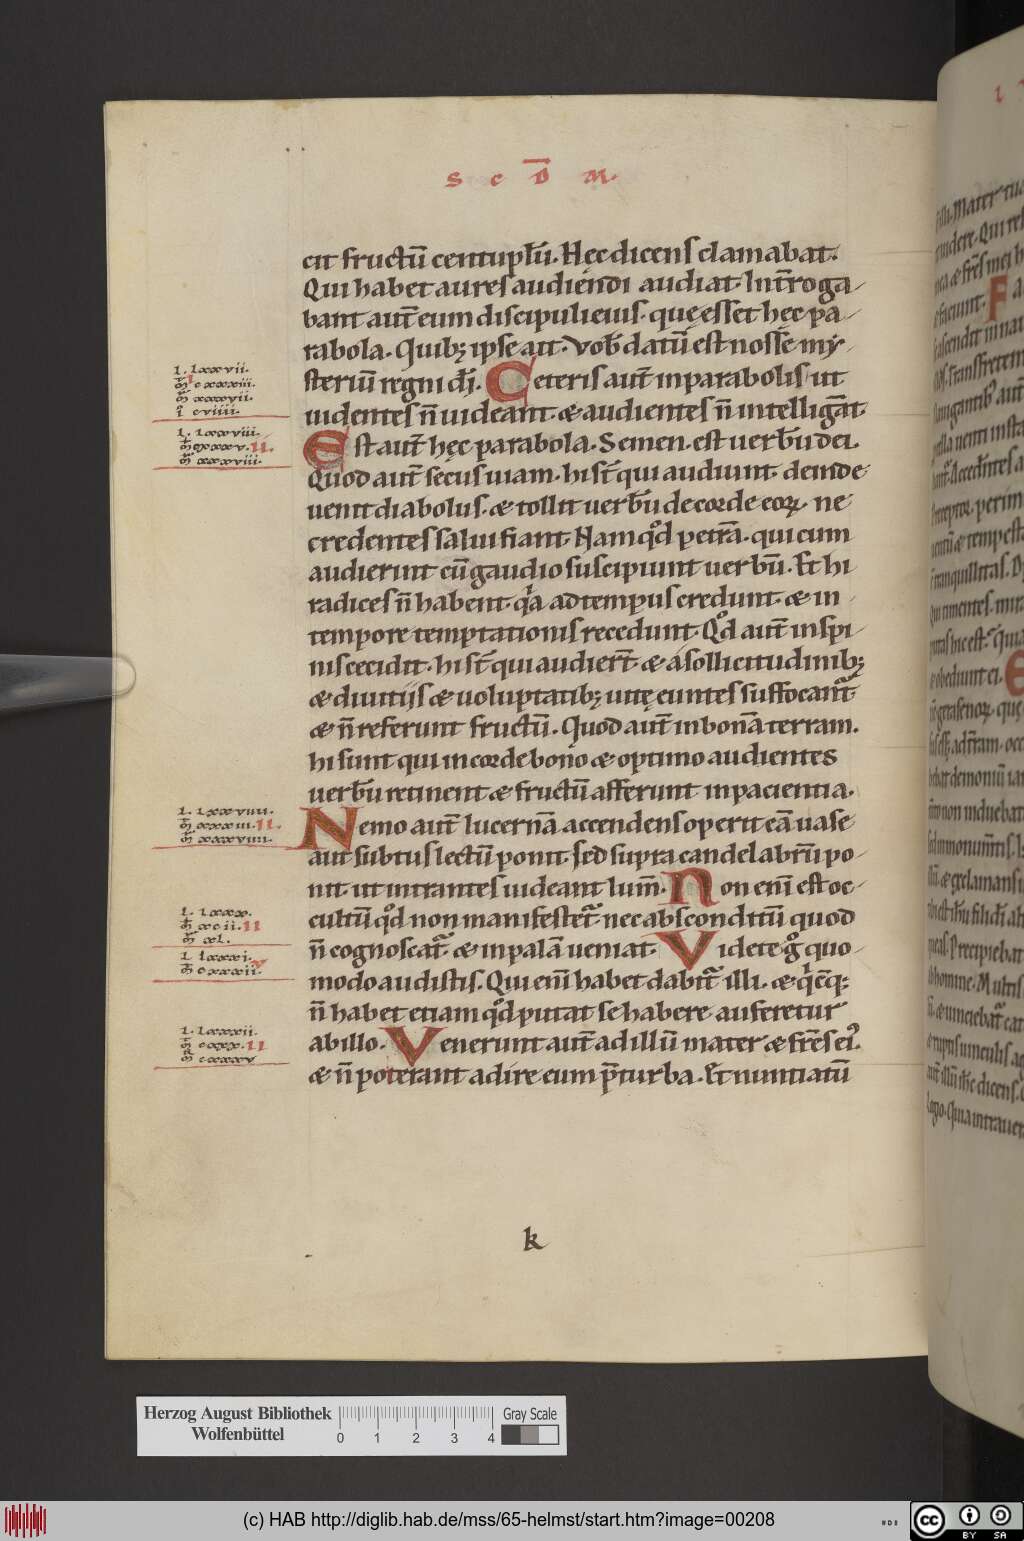 S C D̅ M.
cit fructū centuplū. Hęc dicens clamabat.
Qui habet aures audiendi audiat. Int̄roga-
bant aut̄ eum discipuli eius. quę esset hęc pa-
rabola. Quibꝫ ipse ait. Vob̄ datū est nosse my-
steriū regni dī. Ceteris aut̄ in parabolis. ut
uidentes n̄ uideant. & audientes n̄ intelligāt.
Est aut̄ hęc parabola. Semen. est uerbū dei.
Quod aut̄ secus uiam. hi st̄ qui audiunt. deinde
uenit diabolus. & tollit uerbū de corde eoꝝ. ne
credentes salui fiant. Nam qd̊ petrā. qui cum
audierint cū gaudio suscipiunt uerbū. Et hi
radices n̄ habent. qa ad tempus credunt. & in
tempore temptationis recedunt. Qd̊ aut̄ in spi-
nis cecidit. hi st̄ qui audiert̄ & a sollicitudinibꝫ
& diuitiis & uoluptatibꝫ uitę euntes suffocant᷑
& n̄ referunt fructū. Quod aut̄ in bonā terram.
hi sunt qui in corde bono & optimo audientes
uerbū retinent & fructū afferunt in pacientia.
Nemo aut̄ lucernā accendens operit eā uase
aut subtus lectū ponit. sed supra candelabrū po-
nit. ut intrantes uideant lum̄. Non enī est oc-
cultū qd̊ non manifestet᷑. nec absconditū quod
n̄ cognoscat᷑. & in palā ueniat. Videte gͦ quo-
modo audistis. Qui enī habet dabit᷑ illi. & qicūqꝫ
n̄ habet etiam qd̊ putat se habere auferetur
ab illo. Venerunt aut̄ ad illū mater & frēs eiꝰ.
& n̄ poterant adire eum p̄ turba. Et nuntiatū
k
l. lxxvii.
l. lxxviii.
l. lxxviiii.
l. lxxx.
l. lxxxi.
l. lxxxii.
Herzog August Bibliothek
Wolfenbüttel
0 1 2 3 4
Gray Scale
(c) HAB http://diglib.hab.de/mss/65-helmst/start.htm?image=00208
cc BY SA